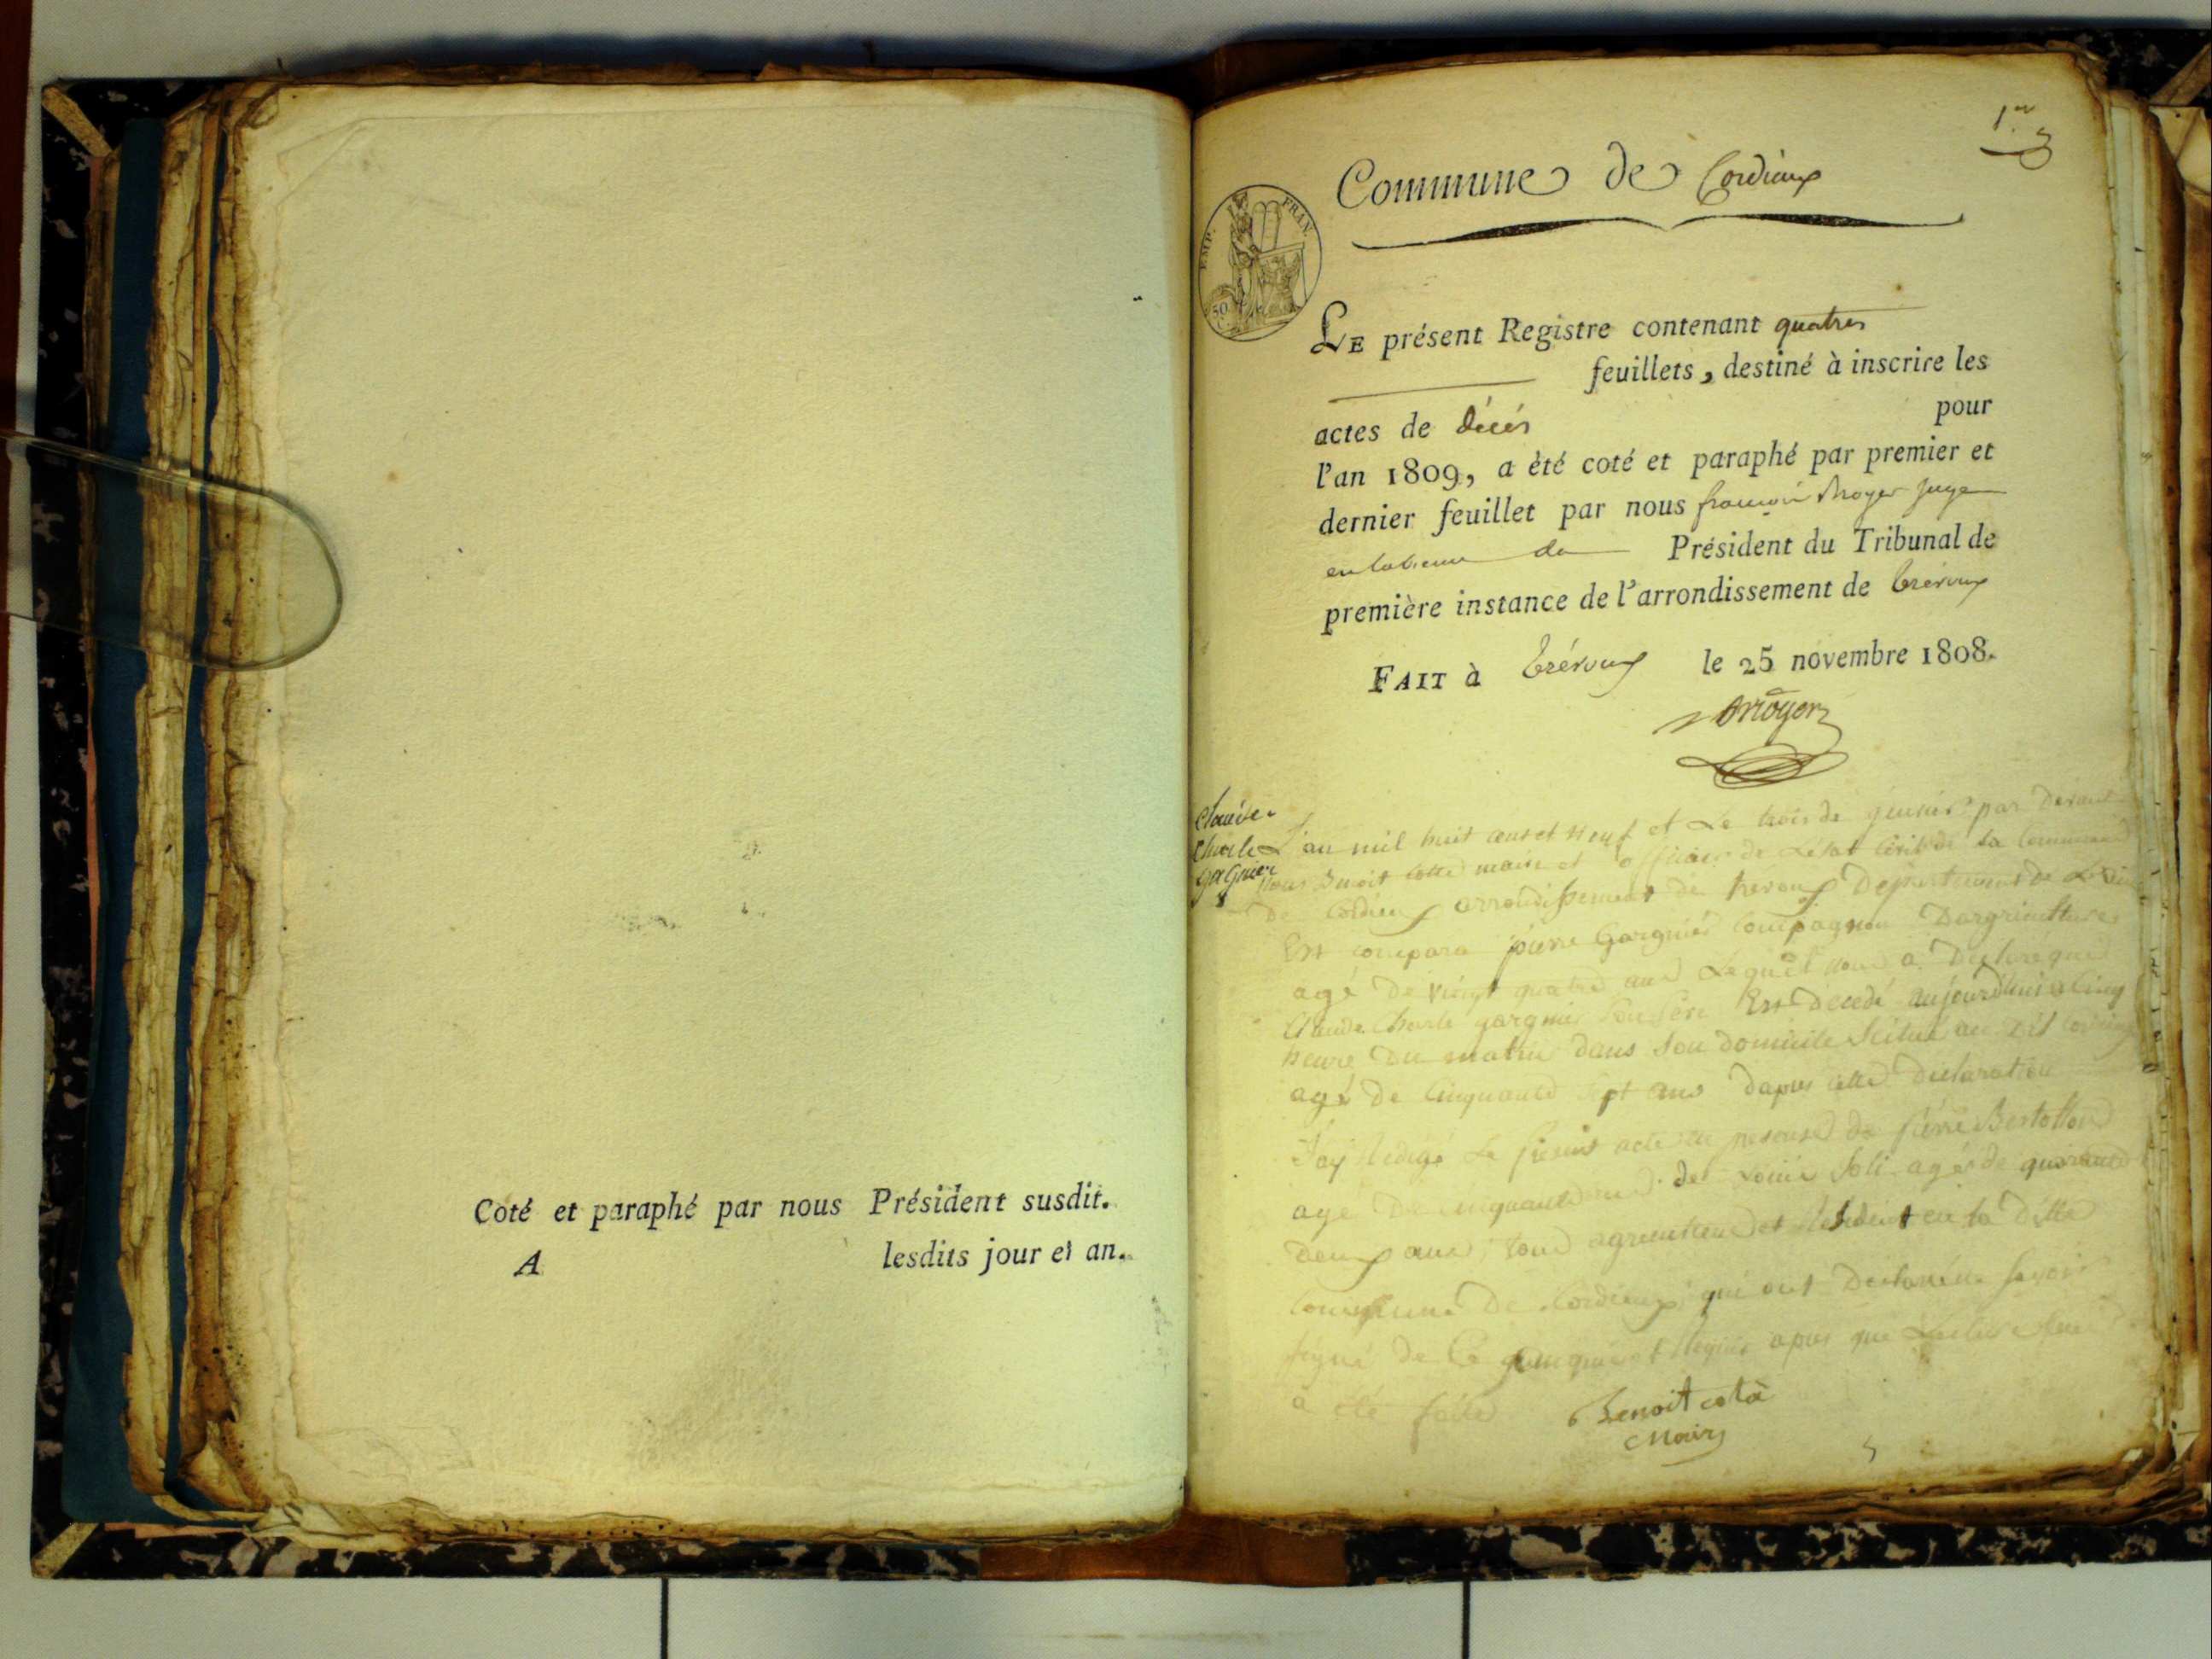 Coté et paraphé par nous Président susdit.
A lesdits jour et an.
1er
Commune de Cordieux
EMP. FRAN.
50
LE présent Registre contenant quatres
feuillets, destiné à inscrire les
actes de décés pour
l'an 1809, a été coté et paraphé par premier et
dernier feuillet par nous françois Royer juge
Président du Tribunal de
première instance de l'arrondissement de trévoux
FAIT à trévoux le 25 novembre 1808.
Royer
Claude
Charle
gargnier
L'an mil huit cent et neuf et Le trois de par devant
nous Benoit maire et officier de Létat civil de la Commune
De Cordieux arrondissement de trevoux Departement de
Est compara pierre Gargnier compagnon Dagriculture
agé De vingt quatre ans Lequel nous a Declare que
Claude Charle gargnier son pere Est décedé aujourdhui a cinq
heure Du matin dans son domicile scitue au dit
agé De cinquante sept ans Dapres cette Declaration
J'ay Redigé Le present acte en presence de pierre
agé De cinquante de agé de quarante
Deux ans, tous et Resident en la Ditte
Commune De Cordieux qui ont Declaré ne savoir
signé de ce Requis apres que Lecture
a été faite Benoit cota
Maire